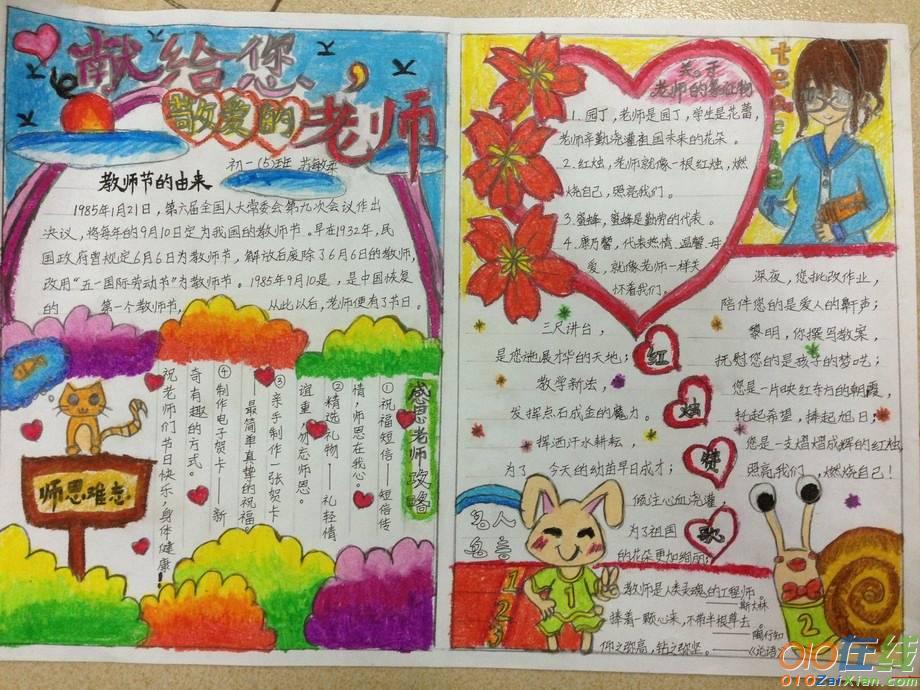 献给您、
敬爱的老师
初一(5)班
教师节的由来
1985年1月21日，第六届全国人大常委会第九次会议作出
决议，将每年的9月10日定为我国的教师节。早在1932年，民
国政府曾规定6月6日为教师节，解放后废除了6月6日的教师节，
改用"五一国际劳动节"为教师节。1985年9月10是，是中国恢复
的 第一个教师节， 从此以后，老师便有了节日。
感恩老师攻略
①祝福短信——短信传
情，师恩在我心。
②精选礼物——礼轻情
谊重，勿忘师恩。
③亲手制作一张贺卡
——最简单真挚的祝福
④制作电子贺卡——新
奇有趣的方式。
祝老师们节日快乐、身体健康！
师恩难忘
关于
老师的象征物
teacher
1.园丁，老师是园丁，学生是花蕾，
老师辛勤浇灌祖国未来的花朵。
2.红烛，老师就像一根红烛，燃
烧自己，照亮我们。
3.蜜蜂，蜜蜂是勤劳的代表。
4.康乃馨，代表热情、温馨、母
爱，就像老师一样关
怀着我们。
红烛赞歌
三尺讲台，
是您施展才华的天地；
教学新法，
发挥点石成金的魔力。
挥洒汗水耕耘，
为了 今天的幼苗早日成才；
倾注心血浇灌，
为了祖国
的花朵更加绚丽；
深夜，您批改作业，
陪伴您的是爱人的鼾声；
黎明，你撰写教案，
抚慰您的是孩子的梦呓；
您是一片映红东方的朝霞，
托起希望，捧起旭日；
您是一支熠熠成辉的红烛，
照亮我们，燃烧自己！
名人
名言
1
2
3
教师是人类灵魂的工程师。
——斯大林
捧着一颗心来，不带半根草去。
——陶行知
仰之弥高，钻之弥坚。——《论语》
1
2
010在线
010ZaiXian.com